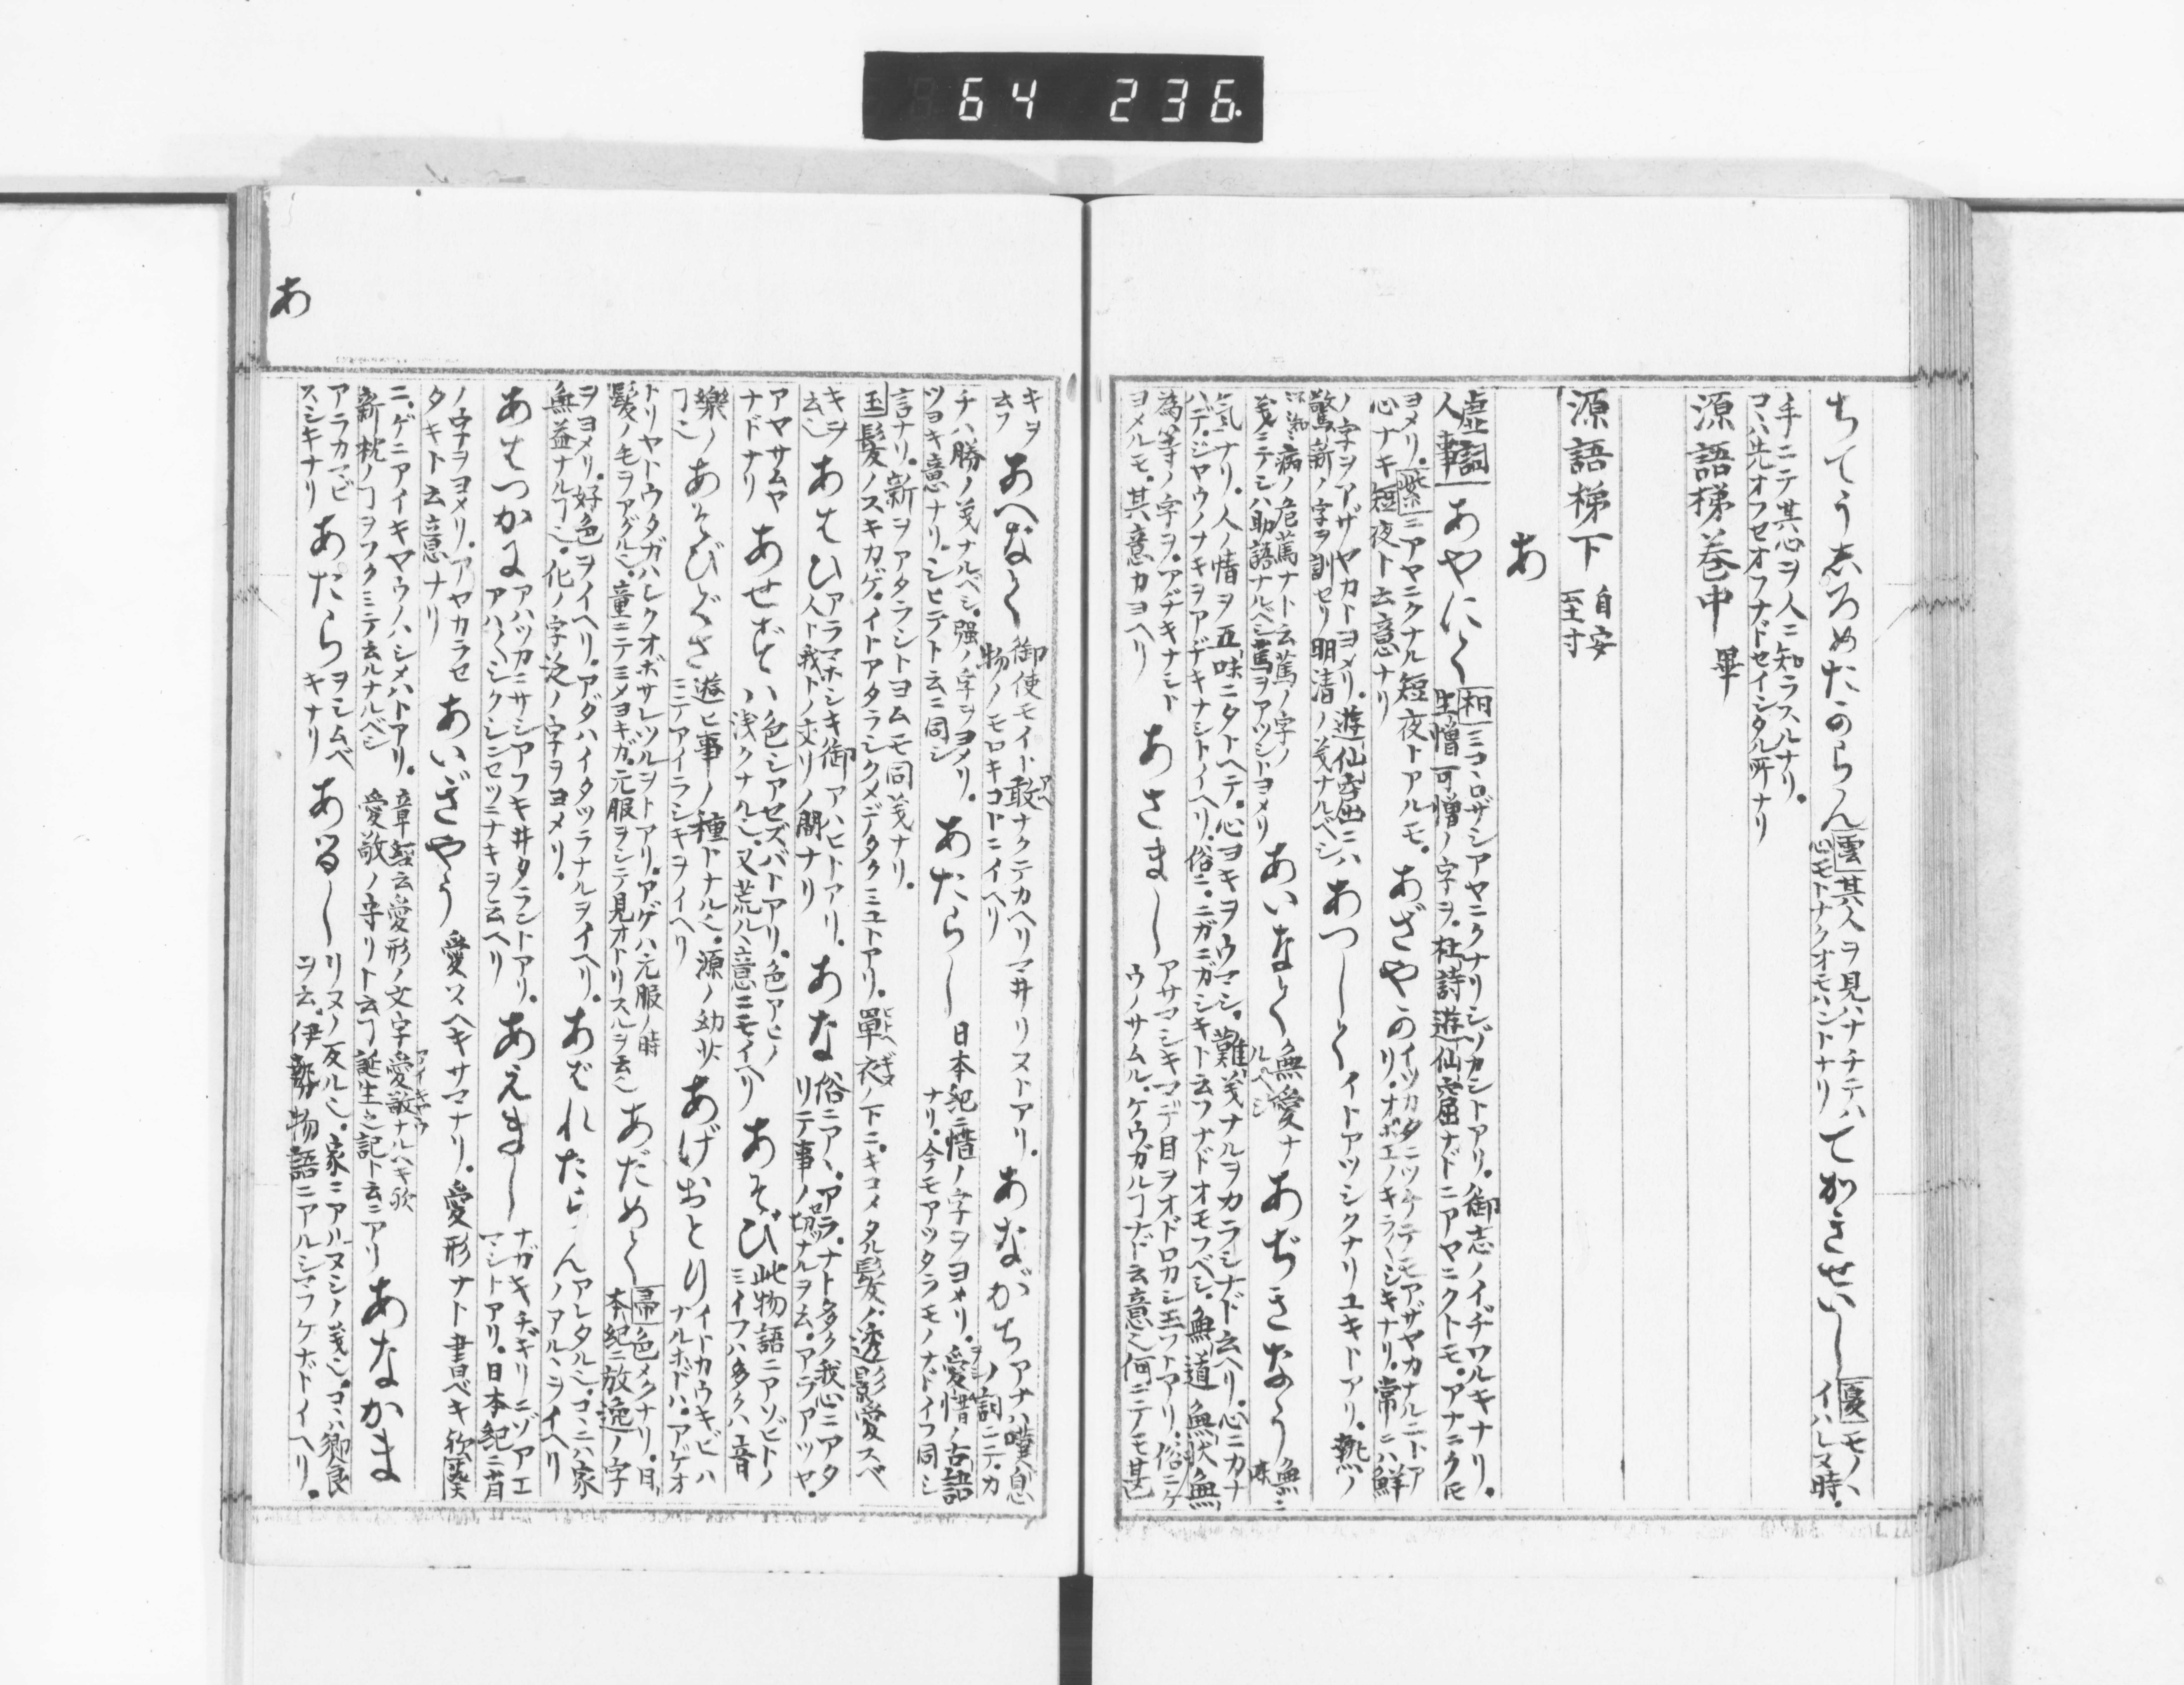 64 236
ちてうしろめたのらん
雲其人ヲ見ハナチテハ
心モトナクオモハントナリ
てがきせい〳〵
夏モノヽ
イハレヌ時
手ニテ其心ヲ人ニ知ラスルナリ
コヽハ先オフセオフナドセイシタル所ナリ
源語梯巻中 畢
源語梯下
自安
至寸
あ
虚詞
人事
あやにく
相ミコヽロザシアヤニクナリシゾカシトアリ。御志ノイヂワルキナリ。
生憎可憎ノ字ヲ。杜詩遊仙窟ナドニアヤニクトモ。アナニクモ
ヨメリ。紫ニアヤニクナル短夜トアルモ。
心ナキ短夜ト云意ナリ
あざやか
イツカタニツケテモアザヤカナルニトア
リ。オボエノキラ〳〵シキナリ。常ニハ鮮
ノ字ヲアザヤカトヨメリ。遊仙窟ニハ
驚新ノ字ヲ訓セリ明清ノ義ナルベシ
あつしく
イトアツシクナリユキトアリ。熱ノ
病ノ危篤ナト云篤ノ字ノ
義ニテシハ助語ナルベシ篤ヲアツシトヨメリ
あいなく
無愛ナ
ルベシ
あぢきなう
無
味
気ナリ。人ノ情ヲ五味ニタトヘテ。心ヨキヲウマシ。難義ナルヲカラシナド云ヘリ。心ニカナ
ハデ。ジヤウノナキヲアヂキナシトイヘリ。俗ニ。ニガニガシキト云フナドオモフベシ。無道無状無
為等ノ字ヲ。アヂキナシト
ヨメルモ。其意カヨヘリ
あさまし
アサマシキマデ目ヲオドロカシ玉フトアリ。俗ニケ
ウノサムル。ケウガルヿナド云意也何ニテモ甚
キヲ
云フ
あへなく
御使モイト敢ナクテカヘリマ井リヌトアリ。
物ノモロキコトニイヘリ
あながち
アナハ嘆息
ノ詞ニテ。カ
チハ勝ノ義ナルベシ。強ノ字ヲヨメリ。
ツヨキ意ナリ。シヒテト云ニ同シ
あたらし
日本紀ニ惜ノ字ヲヨメリ。愛惜ノ古語
ナリ。今モアツタラモノナドイフ同シ
言ナリ。新ヲアタラシトヨムモ同義ナリ。
玉髪ノスキカゲ。イトアタラシクメデタクミユトアリ。單衣ノ下ニ。キコメタル髪ノ透影愛スベ
キヲ
云也
あはひ
アラマホシキ御アハヒトアリ。
人ト我トノ交リノ間ナリ
あな
俗ニアヽ。アラ。ナト多ク我心ニアタ
リテ事ノ切ナルヲ云。アラアツヤ。
アヤサムヤ
ナドナリ
あせずハ
色シアセズバトアリ。色アヒノ
浅クナル也。又荒ルヽ意ニモイヘリ
あそび
此物語ニアソビトノ
ミイフハ多クハ音
樂ノ
ヿ也
あそびぐさ
遊ヒ事ノ種トナル也。源ノ幼サ
ミニアイラシキヲイヘリ
あげおとり
イトカウキビハ
ナルホドハ。アゲオ
トリヤトウタガハシクオボサレツルヲトアリ。アゲハ元服ノ時
髪ノ毛ヲアグル也。童ニテミメヨキガ。元服ヲシテ見オトリスルヲ云也
あだめく
帚色メクナリ。日
本紀ニ放逸ノ字
ヲヨメリ。好色ヲイヘリ。アダハイタツラナルヲイヘリ。
無益ナルヿ也。化ノ字ノ字ヲヨメリ。
あばれたらん
アレタル也。コヽニハ家
ノアルヽヲイヘリ
あはつかに
アハツカニサシアフキ井タラントアリ。
アハ〳〵シクシニセツニナキヲ云ヘリ
あえまし
ナガキチギリニゾアエ
マシトアリ。日本紀ニ肖
ノ字ヲヨメリ。アヤカラセ
タキト云意ナリ
あいぎやう
愛スヘキサマナリ。愛形ナト書ベキ歟葵
ニ。ゲニアイキヤウノハシメハトアリ。
新枕ノヿヲフクミテ云ルナルベシ
章經云愛形ノ文字愛敬ナルヘキ歟
愛敬ノ守リト云ヿ誕生之記ト云ニアリ
あなかま
アラカマビ
スシキナリ
あたら
ヲシムベ
キナリ
ある〳〵
リヌノ反ルヽ也。家ニアルヌシノ義也。コヽハ郷良
ヲ云。伊勢物語ニアルシマフケナドイヘリ。
あ